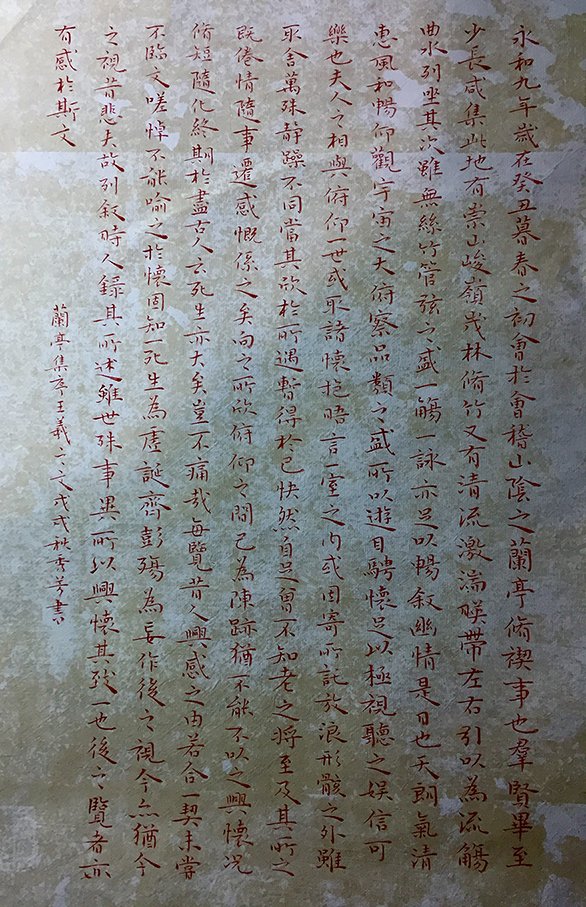 永和九年歲在癸丑暮春之初會於會稽山陰之蘭亭脩禊事也羣賢畢至
少長咸集此地有崇山峻嶺茂林脩竹又有清流激湍暎帶左右引以為流觴
曲水列坐其次雖無絲竹管弦之盛一觴一詠亦足以暢敘幽情是日也天朗氣清
惠風和暢仰觀宇宙之大俯察品類之盛所以遊目騁懷足以極視聽之娛信可
樂也夫人之相與俯仰一世或取諸懷抱晤言一室之內或因寄所託放浪形骸之外雖
取舍萬殊靜躁不同當其欣於所遇暫得於己快然自足曾不知老之將至及其所之
既倦情隨事遷感慨係之矣向之所欣俯仰之間已為陳跡猶不能不以之興懷況
脩短隨化終期於盡古人云死生亦大矣豈不痛哉每覽昔人興感之由若合一契未嘗
不臨文嗟悼不能喻之於懷固知一死生為虛誕齊彭殤為妄作後之視今亦猶今
之視昔悲夫故列敘時人錄其所述雖世殊事異所以興懷其致一也後之覽者亦
有感於斯文
蘭亭集序王羲之文戊戌秋秀芳書